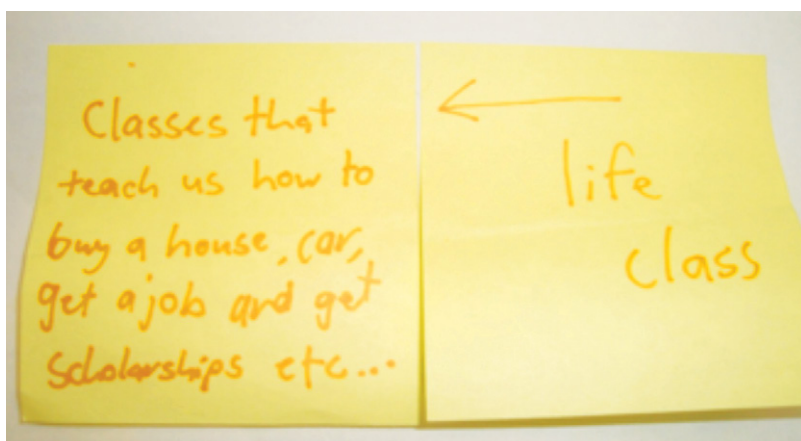 Classes that
teach us how to
buy a house, car,
get a job and get
scholarships etc...
life
class